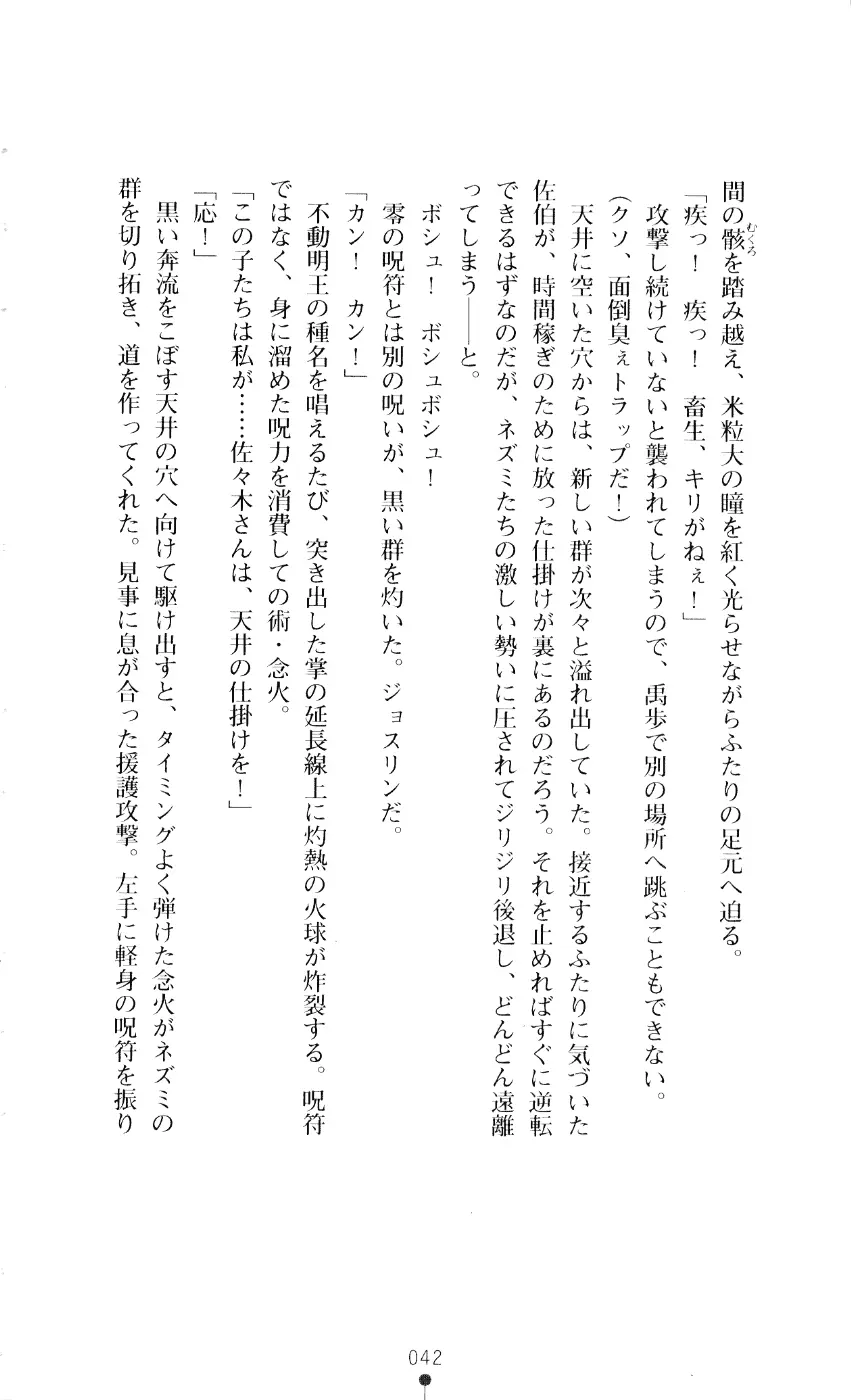 間の骸を踏み越え、米粒大の瞳を紅く光らせながらふたりの足元へ迫る。
「疾っ！　疾っ！　畜生、キリがねぇ！」
　攻撃し続けていないと襲われてしまうので、禹歩で別の場所へ跳ぶこともできない。
（クソ、面倒臭ぇトラップだ！）
　天井に空いた穴からは、新しい群が次々と溢れ出していた。接近するふたりに気づいた
佐伯が、時間稼ぎのために放った仕掛けが裏にあるのだろう。それを止めればすぐに逆転
できるはずなのだが、ネズミたちの激しい勢いに圧されてジリジリ後退し、どんどん遠離
ってしまう――と。
　ボシュ！　ボシュボシュ！
　零の呪符とは別の呪いが、黒い群を灼いた。ジョスリンだ。
「カン！　カン！」
　不動明王の種名を唱えるたび、突き出した掌の延長線上に灼熱の火球が炸裂する。呪符
ではなく、身に溜めた呪力を消費しての術・念火。
「この子たちは私が……佐々木さんは、天井の仕掛けを！」
「応！」
　黒い奔流をこぼす天井の穴へ向けて駆け出すと、タイミングよく弾けた念火がネズミの
群を切り拓き、道を作ってくれた。見事に息が合った援護攻撃。左手に軽身の呪符を振り
むくろ
042